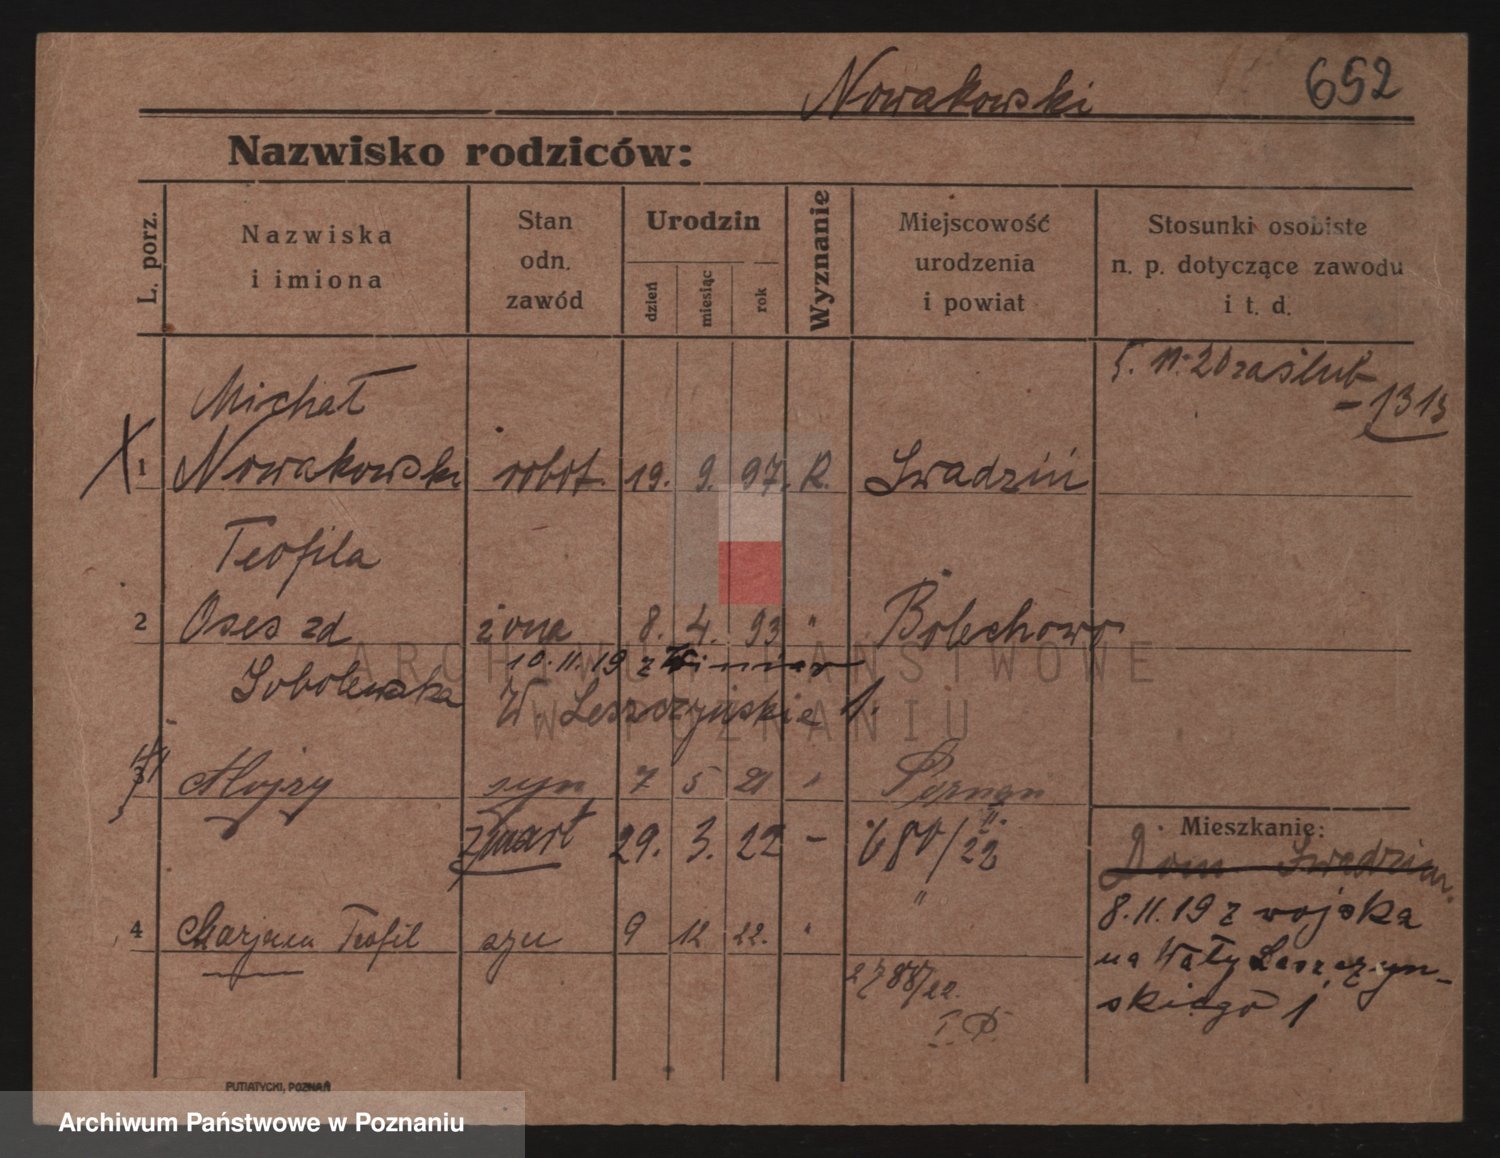 Nowakowski 652
Nazwisko rodziców:
L. porz.
Nazwiska
i imiona
Stan
odn.
zawód
Urodzin
dzień
miesiąc
rok
Wyznanie
Miejscowość
urodzenia
i powiat
Stosunki osobiste
n. p. dotyczące zawodu
i t. d.
5. 11. 20 zaślub
- 1315
Michał
1 Nowakowski robot. 19. 9. 97. R. Swadziń
Teofila
2 Oses zd żona 8. 4. 93 " Bolechowo
10.11.19 z
Sobolewska W Leszczyńskie 1.
3 Alojzy syn 7 5 21 "
zmart 29. 3. 22 - 680/22 II.
"
4 Marjan Teofil syn 9 12 22. "
2788/22.
Mieszkanie:
Dom. Swadzim.
8.11.19 z wojska
na Wały Leszczyn-
skiego 1
PUTIATYCKI, POZNAŃ
ARCHIWUM PAŃSTWOWE
W POZNANIU
Archiwum Państwowe w Poznaniu